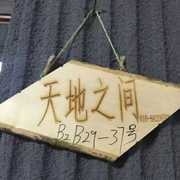 天地之间
B2B29-37号